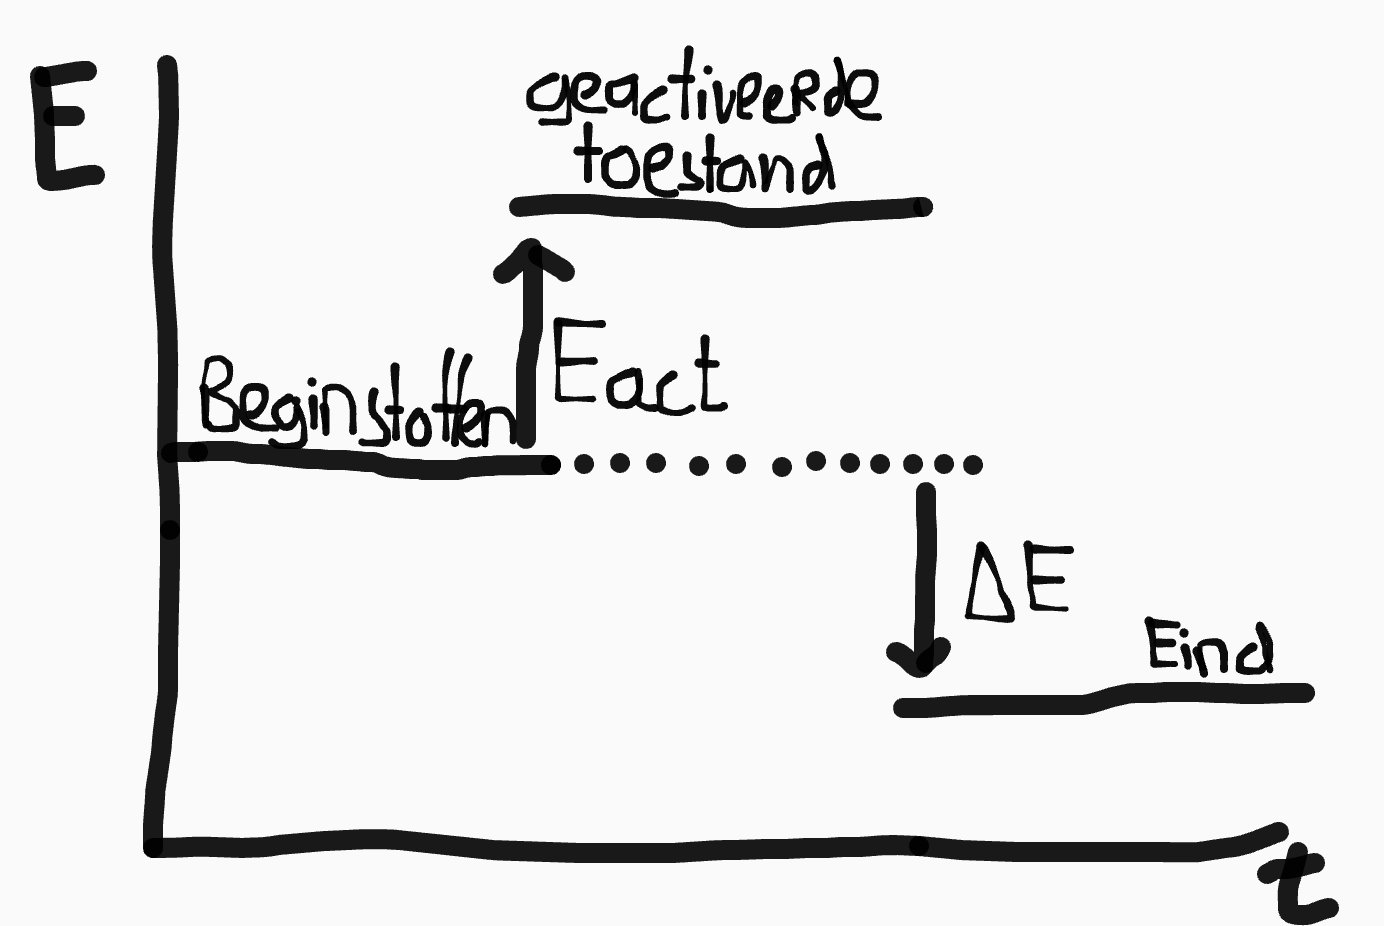 E
geactiveerde
toestand
Beginstoffen
Eact
ΔE
Eind
t